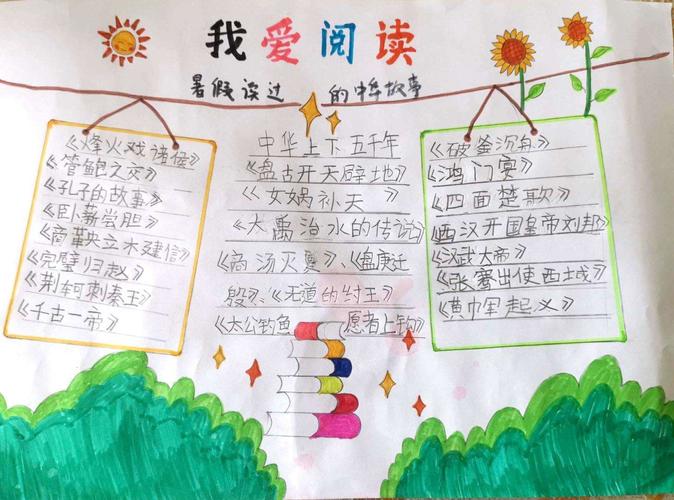 我爱阅读
暑假读过的中华故事
《烽火戏诸侯》
《管鲍之交》
《孔子的故事》
《卧薪尝胆》
《商鞅立木建信》
《完璧归赵》
《荆轲刺秦王》
《千古一帝》
中华上下五千年
《盘古开天辟地》
《女娲补天》
《大禹治水的传说》
《商汤灭夏》、《盘庚迁
殷》、《无道的纣王》
《太公钓鱼 愿者上钩》
《破釜沉舟》
《鸿门宴》
《四面楚歌》
《西汉开国皇帝刘邦》
《汉武大帝》
《张骞出使西域》
《黄巾军起义》